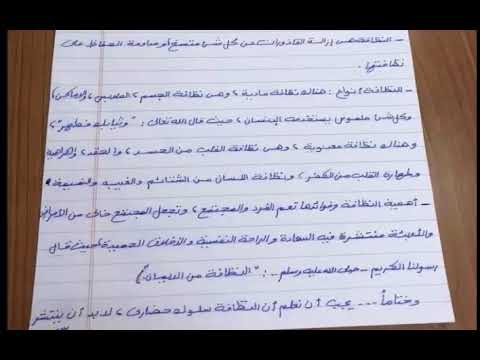 - النظافة هي إزالة القاذورات من كل شئ متسخ أو مداومة الحفاظ على
نظافتها .
- النظافة أنواع : هناك نظافة مادية ، وهي نظافة الجسم ، الملابس ، والأماكن
وكل شئ ملموس يستخدمه الإنسان ، حيث قال الله تعالى : " وثيابك فطهر " ،
وهناك نظافة معنوية ، وهي نظافة القلب من الحسد ، والحقد ، والكراهية
وطهارة القلب من الكفر ، ونظافة اللسان من الشتائم والغيبة والنميمة
- أهمية النظافة وفوائدها تعم الفرد والمجتمع ، وتجعل المجتمع خالى من الأمراض
والأوبئة منتشرة فيه السعادة والراحة النفسية والأخلاق الحميدة حيث قال
رسولنا الكريم - صلى الله عليه وسلم - : " النظافة من الإيمان "
وختاماً --- يجب أن نعلم أن النظافة سلوك حضارى ، لابد أن ينتشر